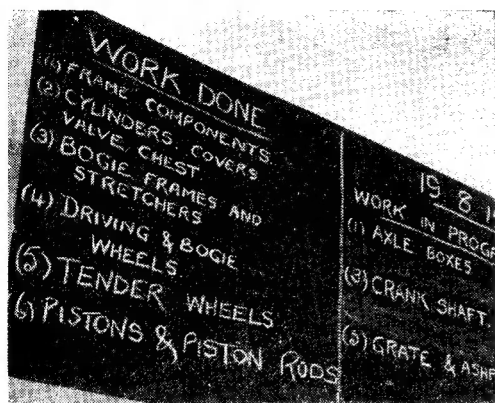 WORK DONE
(1) FRAME COMPONENTS.
(2) CYLINDERS COVERS
VALVE CHEST
(3) BOGIE FRAMES AND
STRETCHERS
(4) DRIVING & BOGIE
WHEELS
(5) TENDER WHEELS
(6) PISTONS & PISTON RODS
19.8.1
WORK IN PROG
(1) AXLE BOXES
(3) CRANK SHAFT.
(5) GRATE & ASH